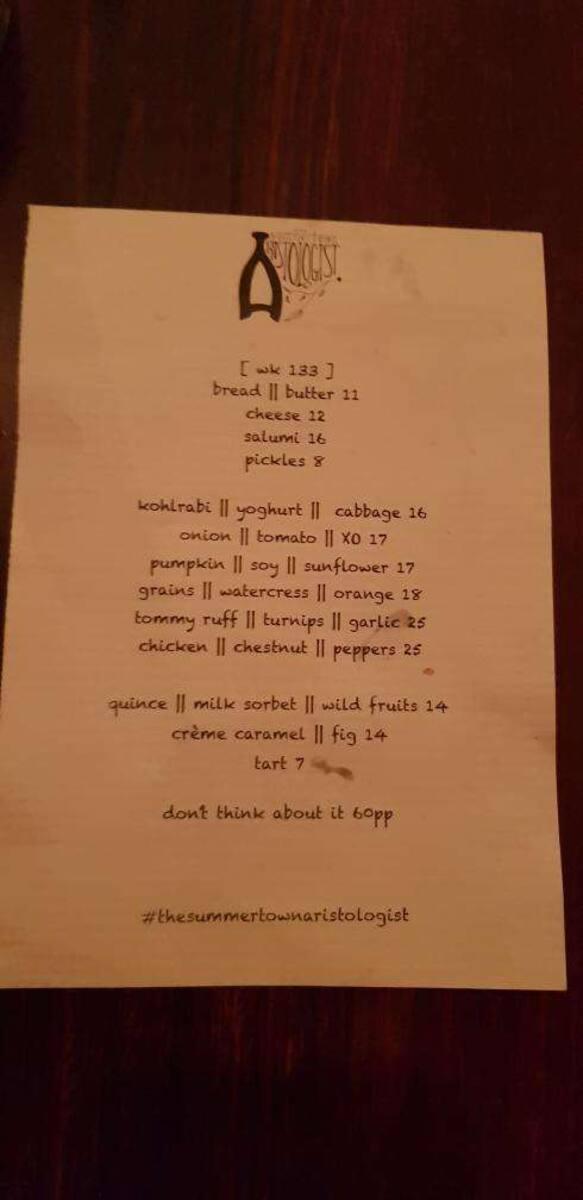 ARISTOLOGIST.
[ wk 133 ]
bread || butter 11
cheese 12
salumi 16
pickles 8
kohlrabi || yoghurt || cabbage 16
onion || tomato || XO 17
pumpkin || soy || sunflower 17
grains || watercress || orange 18
tommy ruff || turnips || garlic 25
chicken || chestnut || peppers 25
quince || milk sorbet || wild fruits 14
crème caramel || fig 14
tart 7
don't think about it 60pp
#thesummertownaristologist